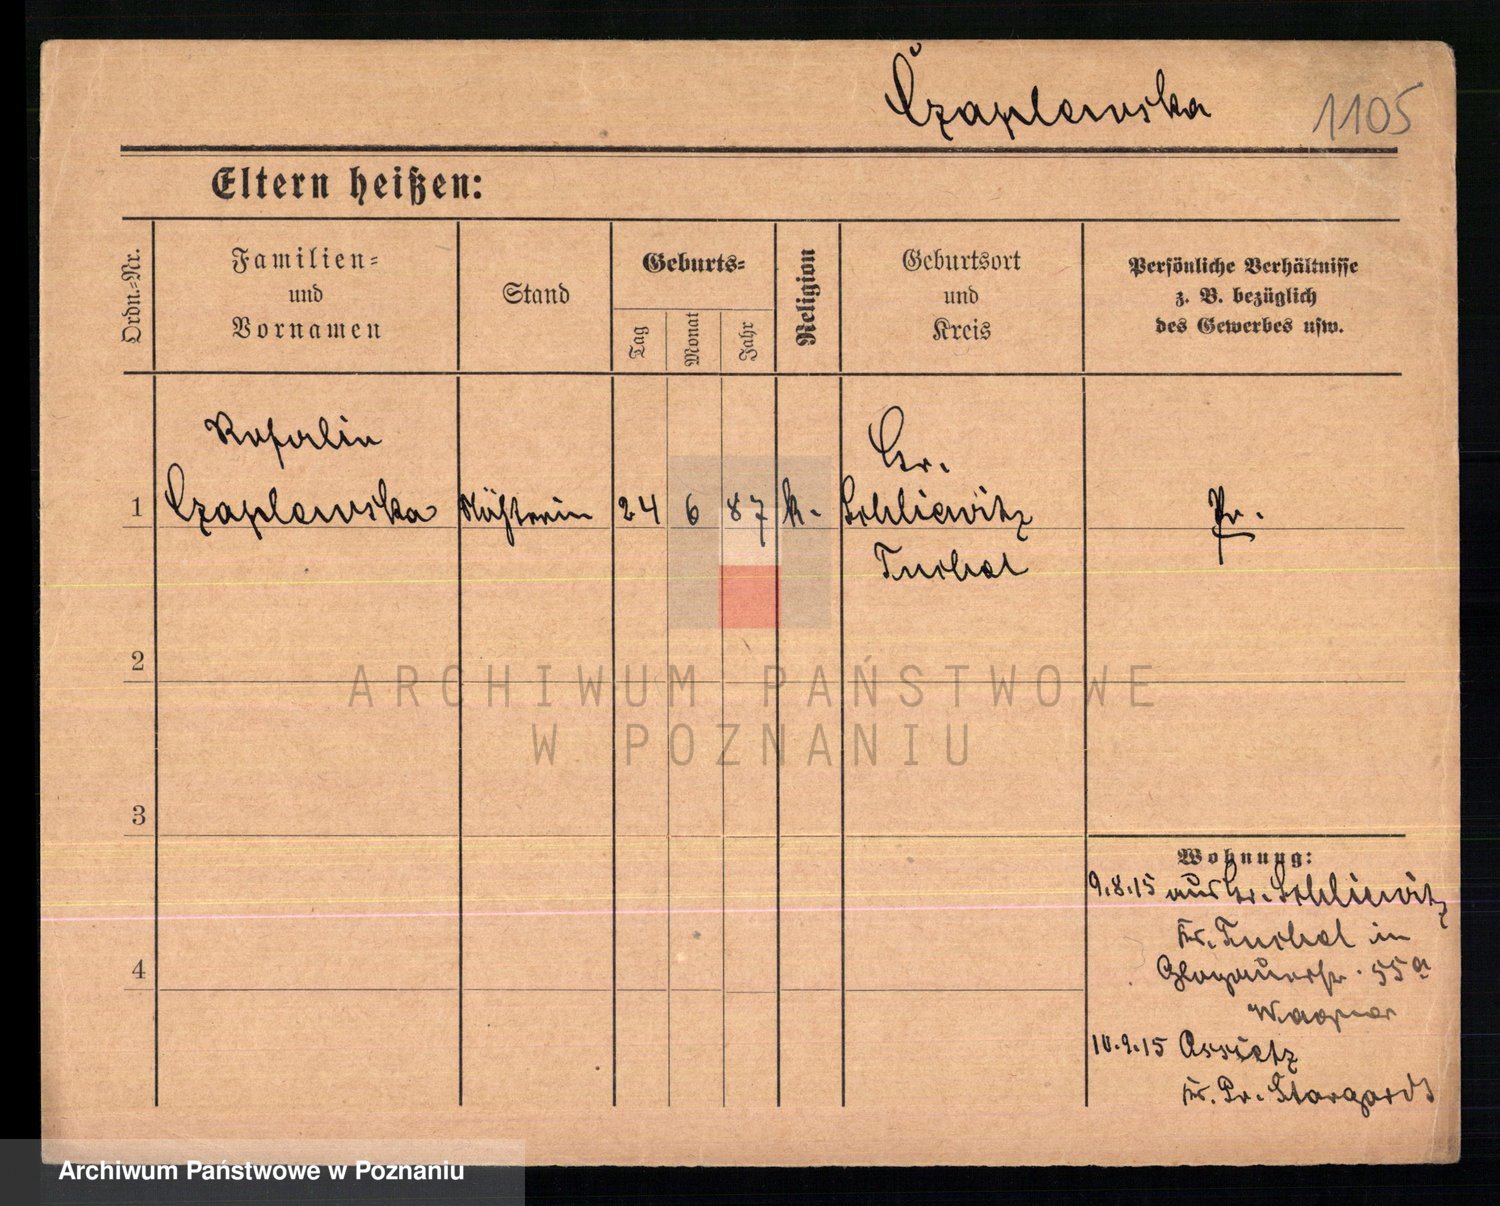 Czaplewska 1105
Eltern heißen:
Ordn.-Nr.
Familien-
und
Vornamen
Stand
Geburts-
Tag
Monat
Jahr
Religion
Geburtsort
und
Kreis
Persönliche Verhältnisse
z. B. bezüglich
des Gewerbes usw.
Rosalie
Gr.
1 Czaplewska 24 6 87 k. Schliewitz Pr.
Tuchel
2
3
4
Wohnung:
9.8.15 aus Gr. Schliewitz
Kr. Tuchel in
Glogauerstr. 55a
Wagner
10.9.15
Kr. Pr. Stargardt
ARCHIWUM PAŃSTWOWE
W POZNANIU
Archiwum Państwowe w Poznaniu